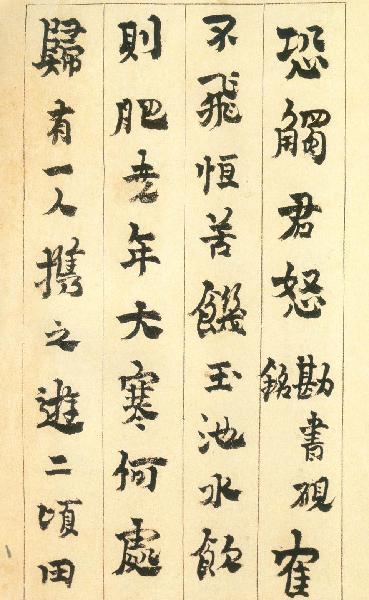 恐觸君怒勘書硯銘寉
不飛恒苦饑玉池水飲
則肥去年大寒何處
歸有一人攜之遊二頃田